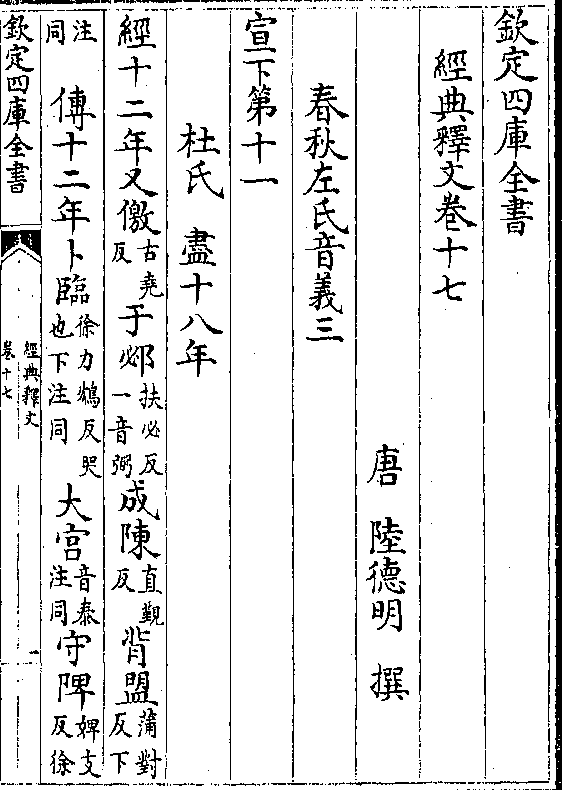 欽定四庫全書
經典釋文卷十七
唐 陸德明 撰
春秋左氏音義三
宣下第十一
杜氏 盡十八年
經十二年又儌古堯反于邲扶必反一音弼成陳直覲反背盟蒲對反下
注同傳十二年卜臨徐力鴆反哭也下注同大宫音泰注同守陴婢支反徐
欽定四庫全書
經典釋文
卷十七
一